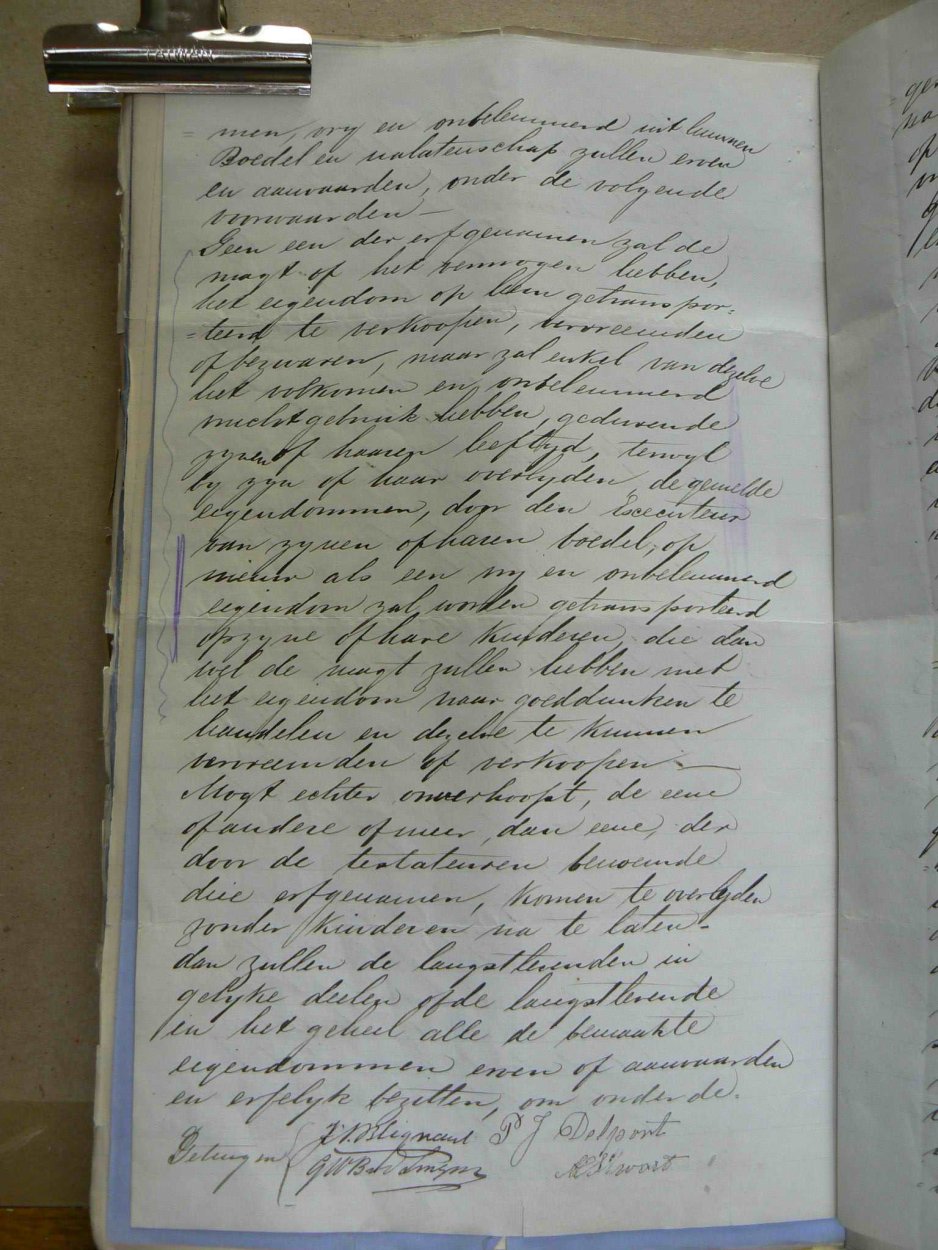 TAIWAN
= men, vry en onbelemmerd uit hunnen
Boedel en nalatenschap zullen erven
en aanvaarden, onder de volgende
voorwaarden —
Geen een der erfgenamen zal de
magt of het vermogen hebben,
het eigendom op hem getranspor=
=teerd te verkoopen, vervreemden
of bezwaren, maar zal enkel van dezelve
het volkomen en onbelemmerd
vruchtgebruik hebben, gedurende
zynen of haaren leeftyd, terwyl
by zyn of haar overlyden, de gemelde
eigendommen, door den Executeur
van zynen of haren boedel, op
nieuw als een vry en onbelemmerd
eigendom zal worden getransporteerd
op zyne of hare kinderen, die dan
wel de magt zullen hebben met
het eigendom naar goeddunken te
handelen en dezelve te kunnen
vervreemden of verkoopen —
Mogt echter onverhoopt, de eene
of andere of meer, dan eene, der
door de testateuren benoemde
drie erfgenamen, komen te overlyden
zonder kinderen na te laten -
dan zullen de langstlevenden in
gelyke deelen of de langstlevende
in het geheel alle de bemaakte
eigendommen erven of aanvaarden
en erfelyk bezitten, om onder de.
Getuigen P J Delport